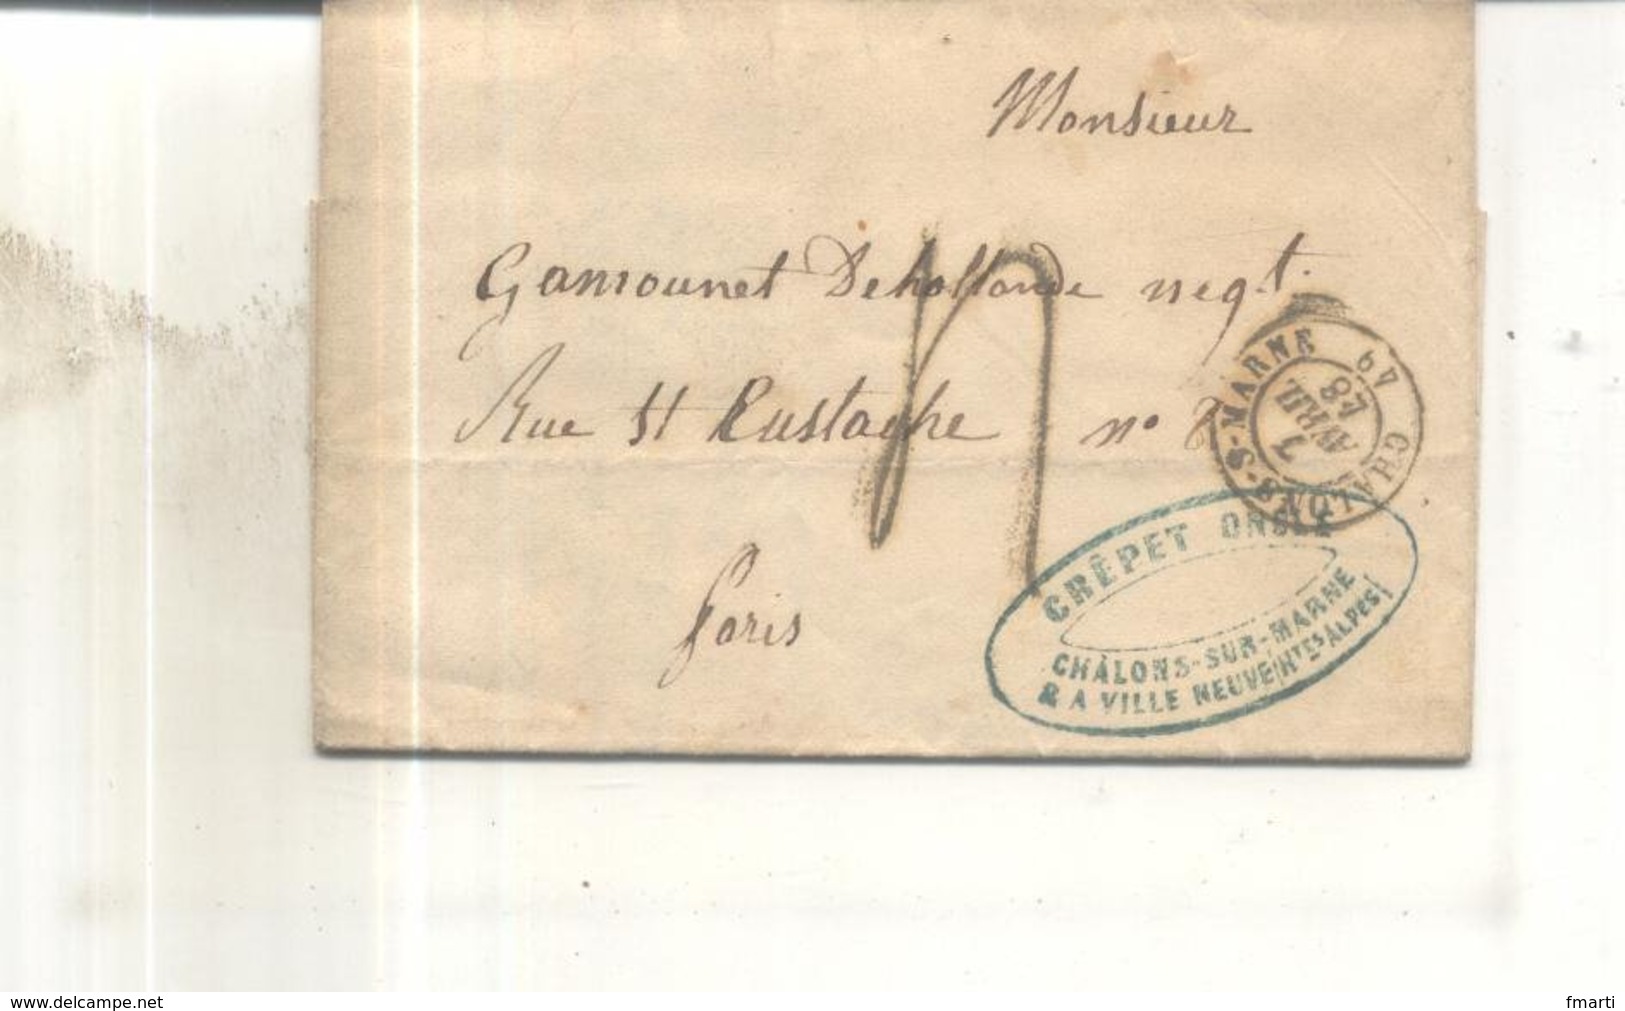 Monsieur
Gamounet Dehollande negt.
Rue St Eustache no
Paris
49 CHALONS-S-MARNE
1 AVRIL 48
CRÊPET
CHÂLONS-SUR-MARNE
& A VILLE NEUVE (Htes ALPES)
www.delcampe.net
fmarti